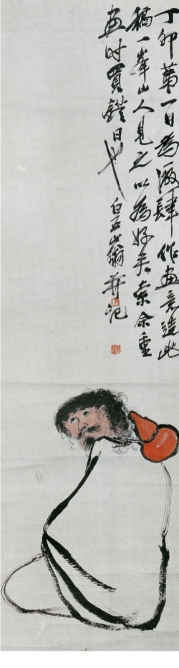 丁卯第一日為酒肆作畫意造此
稿一峯山人見之以為好手索余重
畫時買錯日也
白石山翁并記